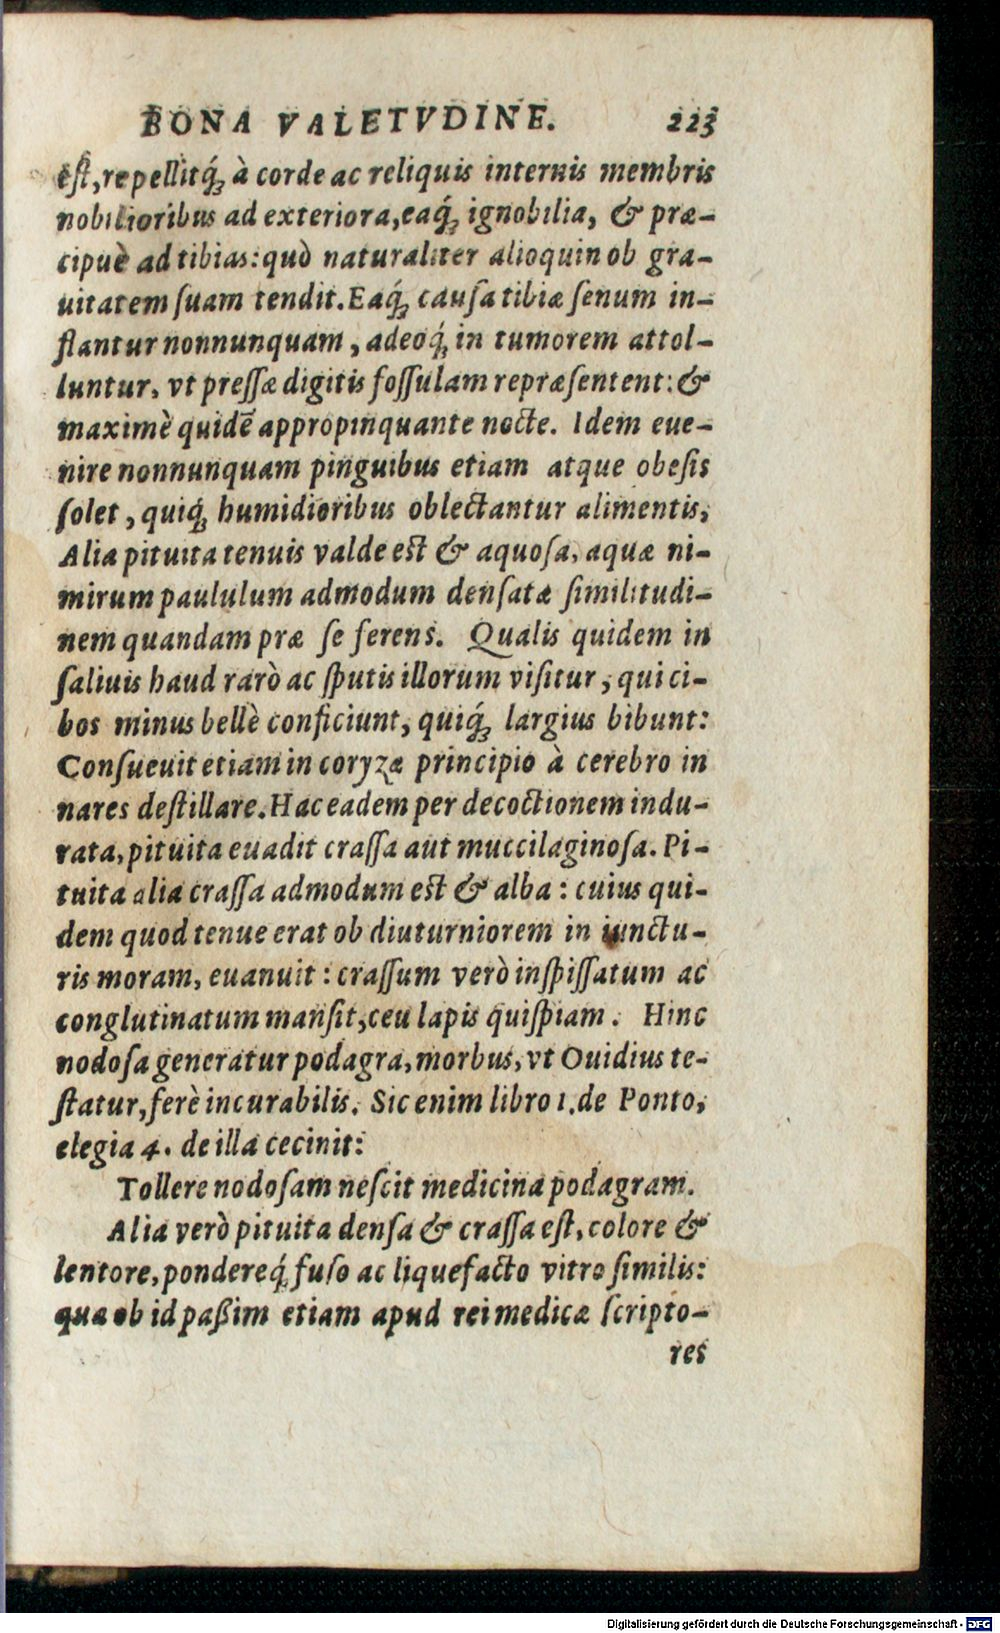 BONA VALETVDINE. 223
eſt, repellitq́ꝫ à corde ac reliquis internis membris
nobilioribus ad exteriora, eaq́ꝫ ignobilia, & præ-
cipuè ad tibias: quò naturaliter alioquin ob gra-
uitatem ſuam tendit. Eaq́ꝫ cauſa tibiæ ſenum in-
flantur nonnunquam, adeoq́ꝫ in tumorem attol-
luntur, vt preſſæ digitis foſſulam repræſentent: &
maximè quidē appropinquante nocte. Idem eue-
nire nonnunquam pinguibus etiam atque obeſis
ſolet, quiq́ꝫ humidioribus oblectantur alimentis,
Alia pituita tenuis valde est & aquoſa, aquæ ni-
mirum paululum admodum denſatæ ſimilitudi-
nem quandam præ ſe ferens. Qualis quidem in
ſaliuis haud rarò ac ſputis illorum viſitur, qui ci-
bos minus bellè conficiunt, quiq́ꝫ largius bibunt:
Conſueuit etiam in coryzæ principio à cerebro in
nares deſtillare. Hac eadem per decoctionem indu-
rata, pituita euadit craſſa aut muccilaginoſa. Pi-
tuita alia craſſa admodum est & alba: cuius qui-
dem quod tenue erat ob diuturniorem in iunctu-
ris moram, euanuit: craſſum verò inſpiſſatum ac
conglutinatum manſit, ceu lapis quiſpiam. Hinc
nodoſa generatur podagra, morbus, vt Ouidius te-
ſtatur, ferè incurabilis. Sic enim libro 1. de Ponto,
elegia 4. de illa cecinit:
Tollere nodoſam neſcit medicina podagram.
Alia verò pituita denſa & craſſa eſt, colore &
lentore, pondereq́ꝫ fuſo ac liquefacto vitro ſimilis:
qua ob id paßim etiam apud rei medicæ ſcripto-
res
Digitalisierung gefördert durch die Deutsche Forschungsgemeinschaft - DFG